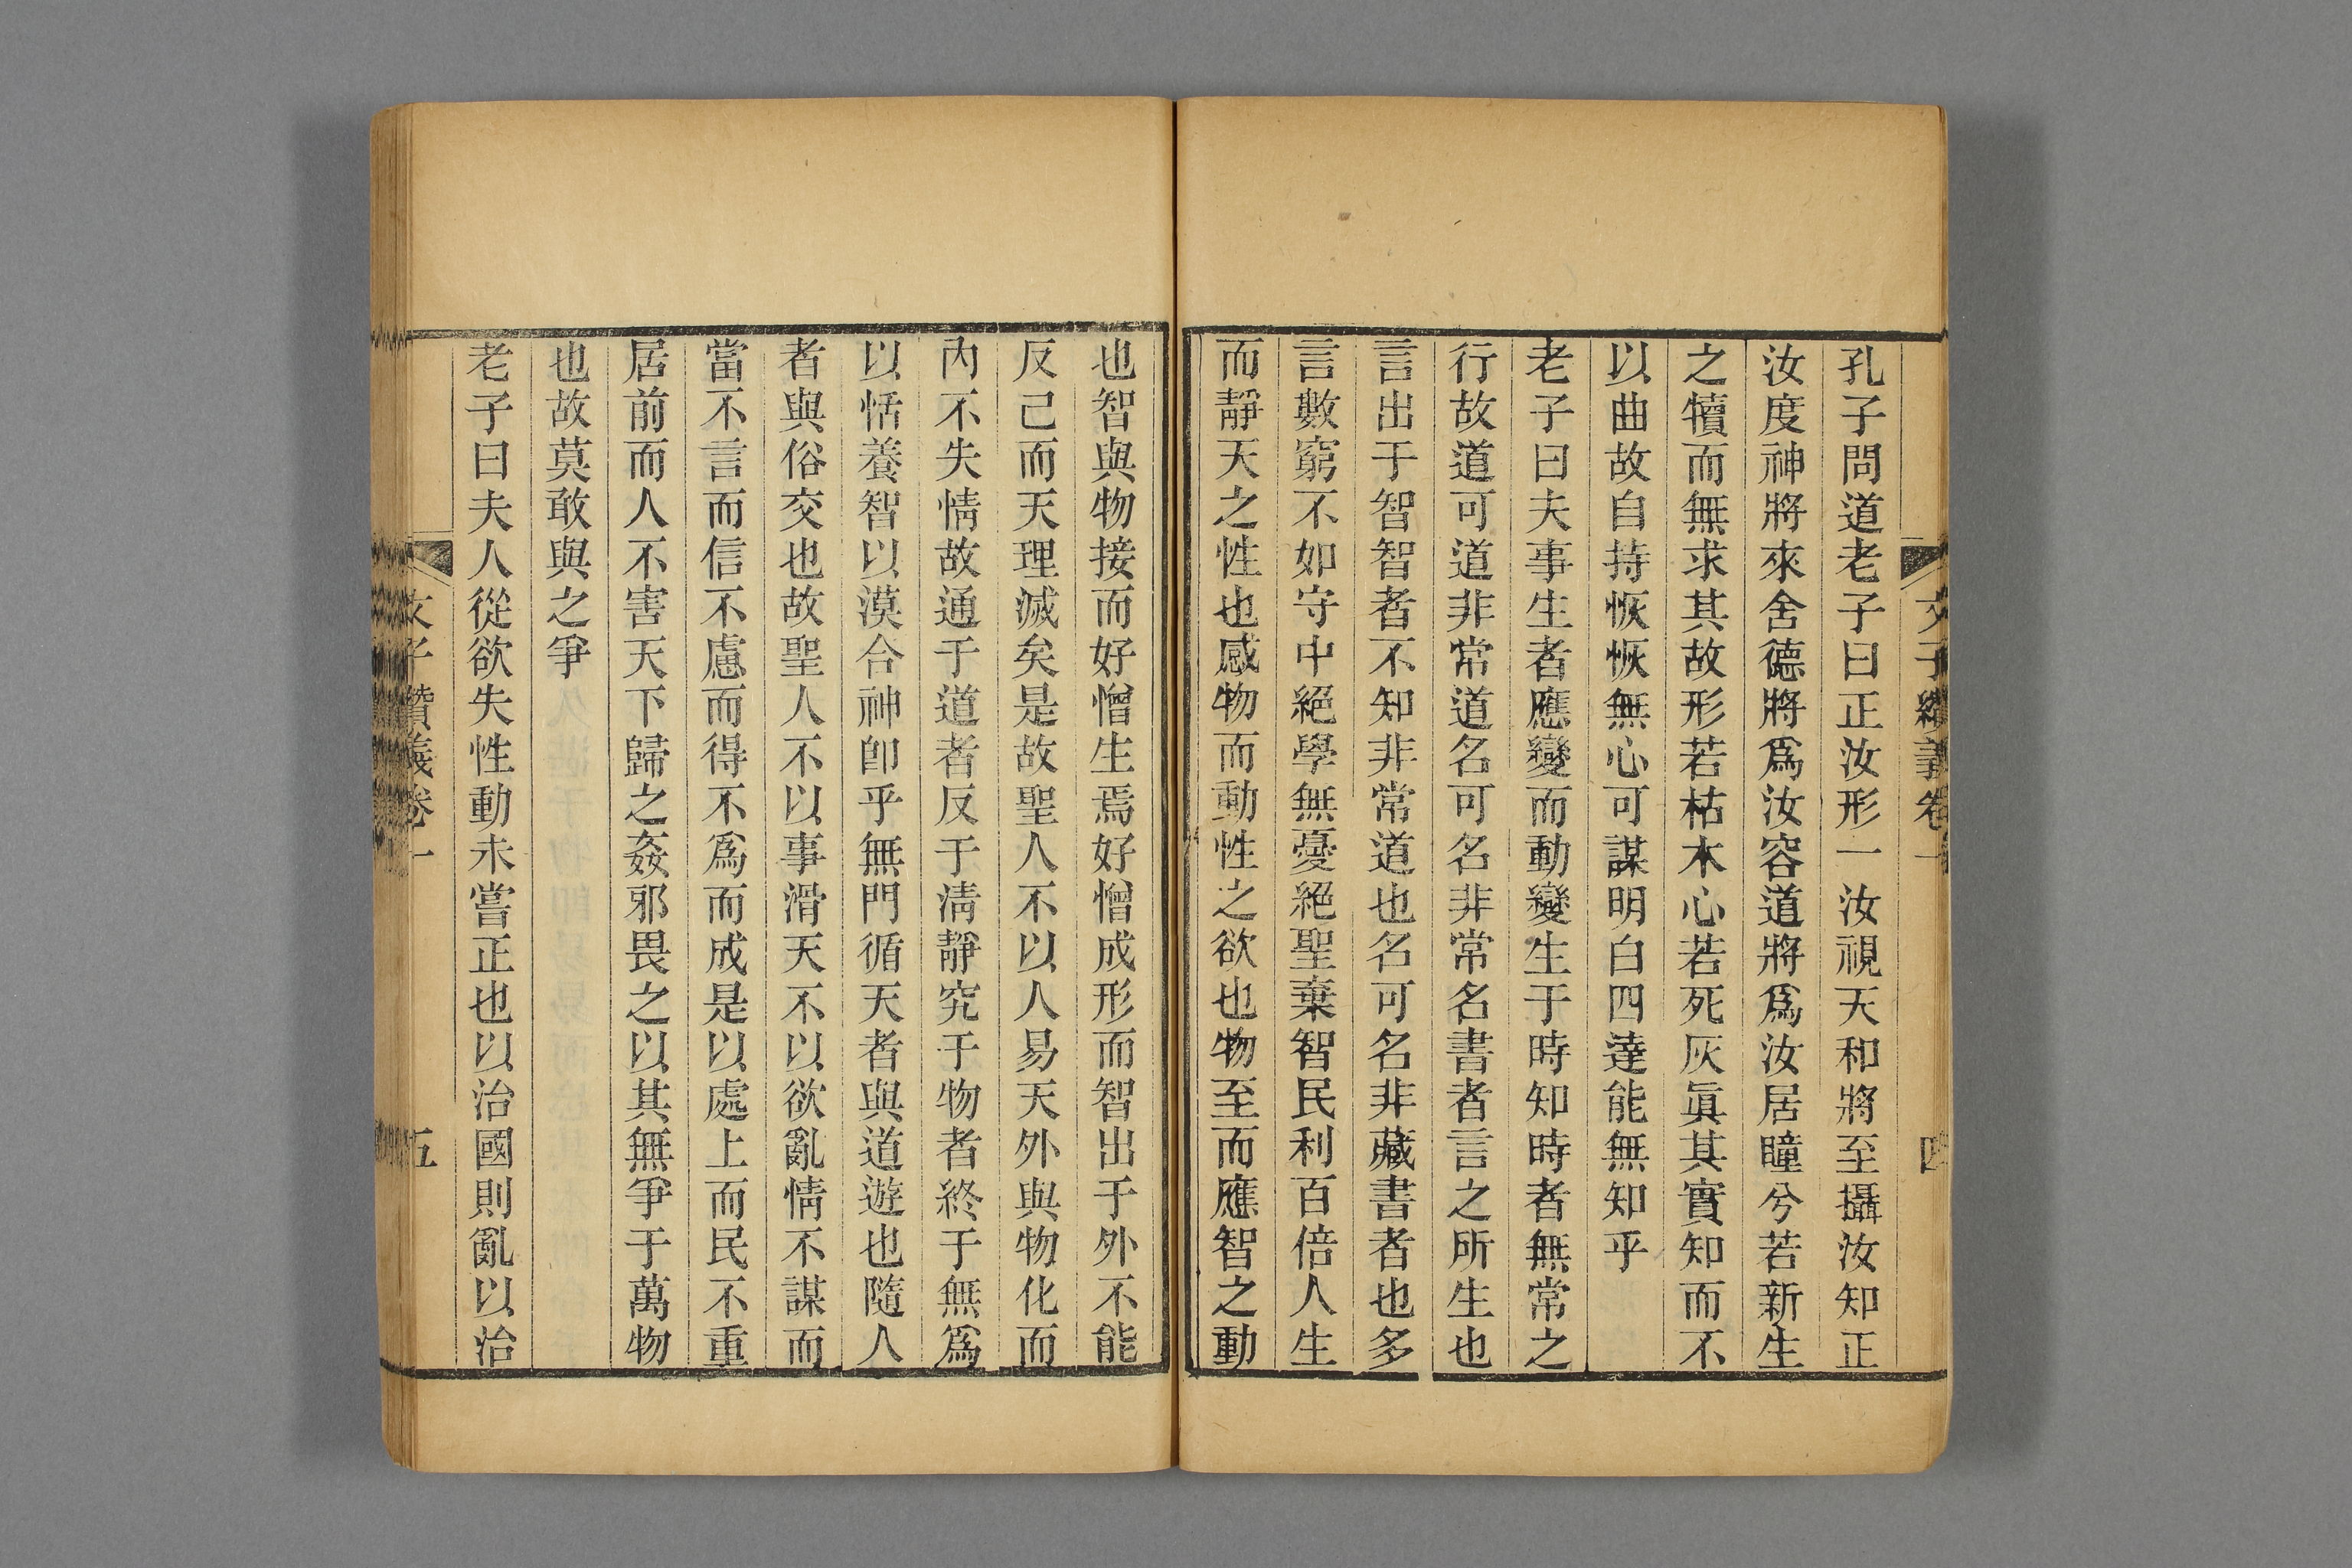 文子纘義卷一 四
孔子問道老子曰正汝形一汝視天和將至攝汝知正
汝度神將來舍德將爲汝容道將爲汝居瞳兮若新生
之犢而無求其故形若枯木心若死灰眞其實知而不
以曲故自持恢恢無心可謀明白四達能無知乎
老子曰夫事生者應變而動變生于時知時者無常之
行故道可道非常道名可名非常名書者言之所生也
言出于智智者不知非常道也名可名非藏書者也多
言數窮不如守中絕學無憂絕聖棄智民利百倍人生
而靜天之性也感物而動性之欲也物至而應智之動
也智與物接而好憎生焉好憎成形而智出于外不能
反己而天理滅矣是故聖人不以人易天外與物化而
內不失情故通于道者反于淸靜究于物者終于無爲
以恬養智以漠合神卽乎無門循天者與道遊也隨人
者與俗交也故聖人不以事滑天不以欲亂情不謀而
當不言而信不慮而得不爲而成是以處上而民不重
居前而人不害天下歸之姦邪畏之以其無爭于萬物
也故莫敢與之爭
老子曰夫人從欲失性動未嘗正也以治國則亂以治
文子纘義卷一 五